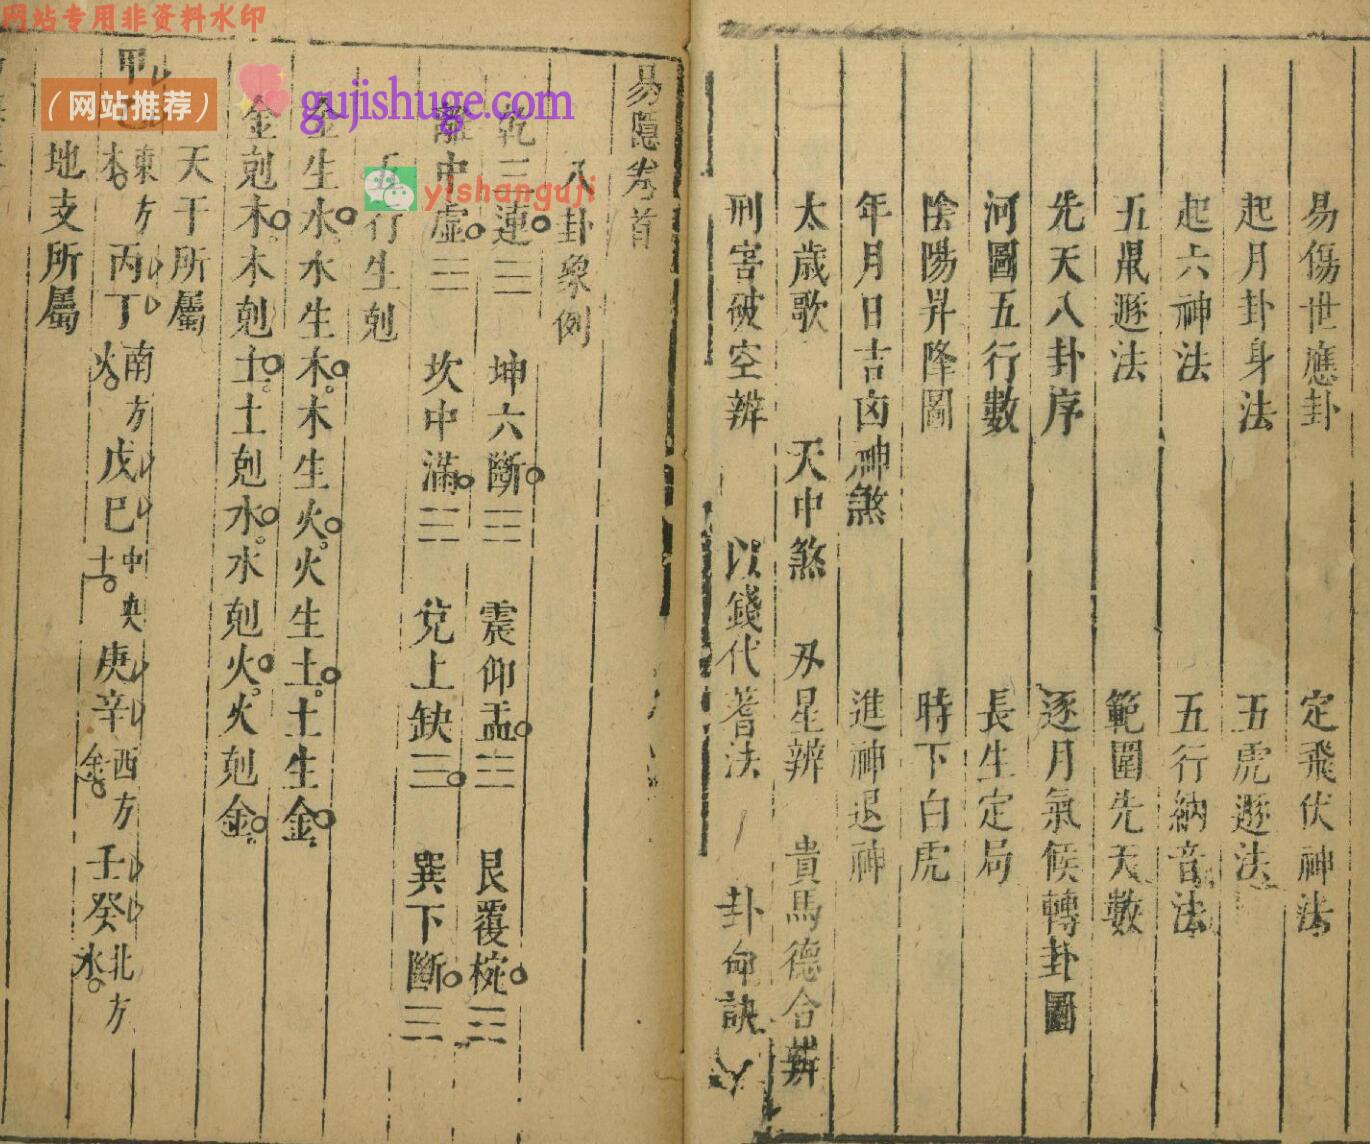 网站专用非资料水印
（网站推荐）
gujishuge.com
yishanguji
易傷世應卦 定飛伏神法
起月卦身法 五虎遁法
起六神法 五行納音法
五鼠遁法 範圍先天數
先天八卦序 逐月氣候轉卦圖
河圖五行數 長生定局
陰陽昇降圖 時下白虎
年月日吉凶神煞 進神退神
太歲歌 天中煞 刃星辨 貴馬德合辨
刑害破空辨 以錢代蓍法 卦命訣
易隱卷首
八卦象例
乾三連☰ 坤六斷☷ 震仰盂☳ 艮覆椀☶
離中虛☲ 坎中滿☵ 兌上缺☱ 巽下斷☴
五行生剋
金生水水生木木生火火生土土生金
金剋木木剋土土剋水水剋火火剋金
天干所屬
甲乙東方木 丙丁南方火 戊巳中央土 庚辛西方金 壬癸北方水
地支所屬